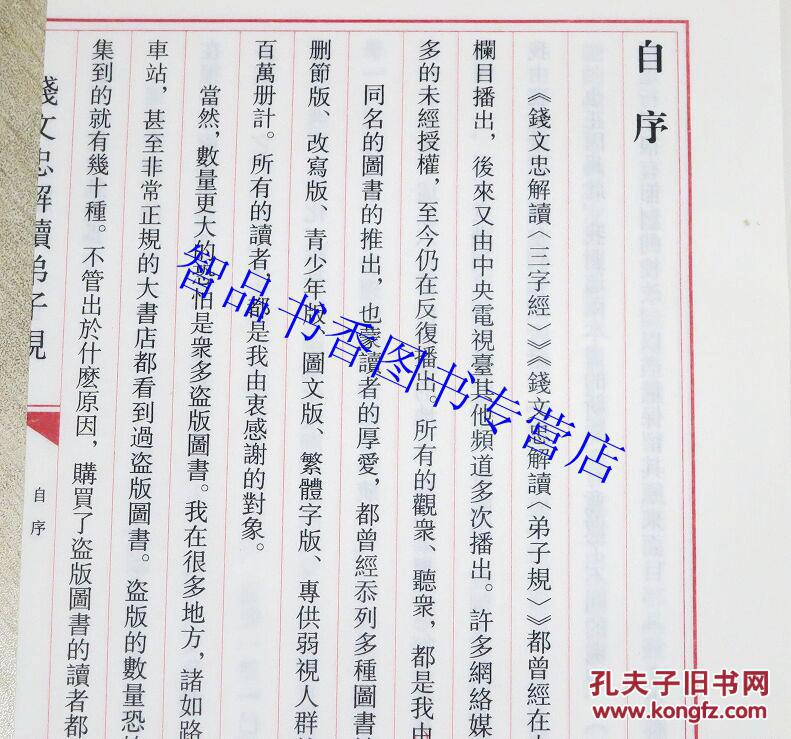 自序
《錢文忠解讀〈三字經〉》《錢文忠解讀〈弟子規〉》都曾經在
欄目播出，後來又由中央電視臺其他頻道多次播出。許多網絡媒
多的未經授權，至今仍在反復播出。所有的觀衆、聽衆，都是我由
同名的圖書的推出，也蒙讀者的厚愛，都曾經忝列多種圖書
删節版、改寫版、青少年版、圖文版、繁體字版、專供弱視人群
百萬册計。所有的讀者，都是我由衷感謝的對象。
當然，數量更大的恐怕是衆多盗版圖書。我在很多地方，諸如路
車站，甚至非常正規的大書店都看到過盗版圖書。盗版的數量恐
集到的就有幾十種。不管出於什麽原因，購買了盗版圖書的讀者都
錢文忠解讀弟子規
自序
智品书香图书专营店
孔夫子旧书网
www.kongfz.com